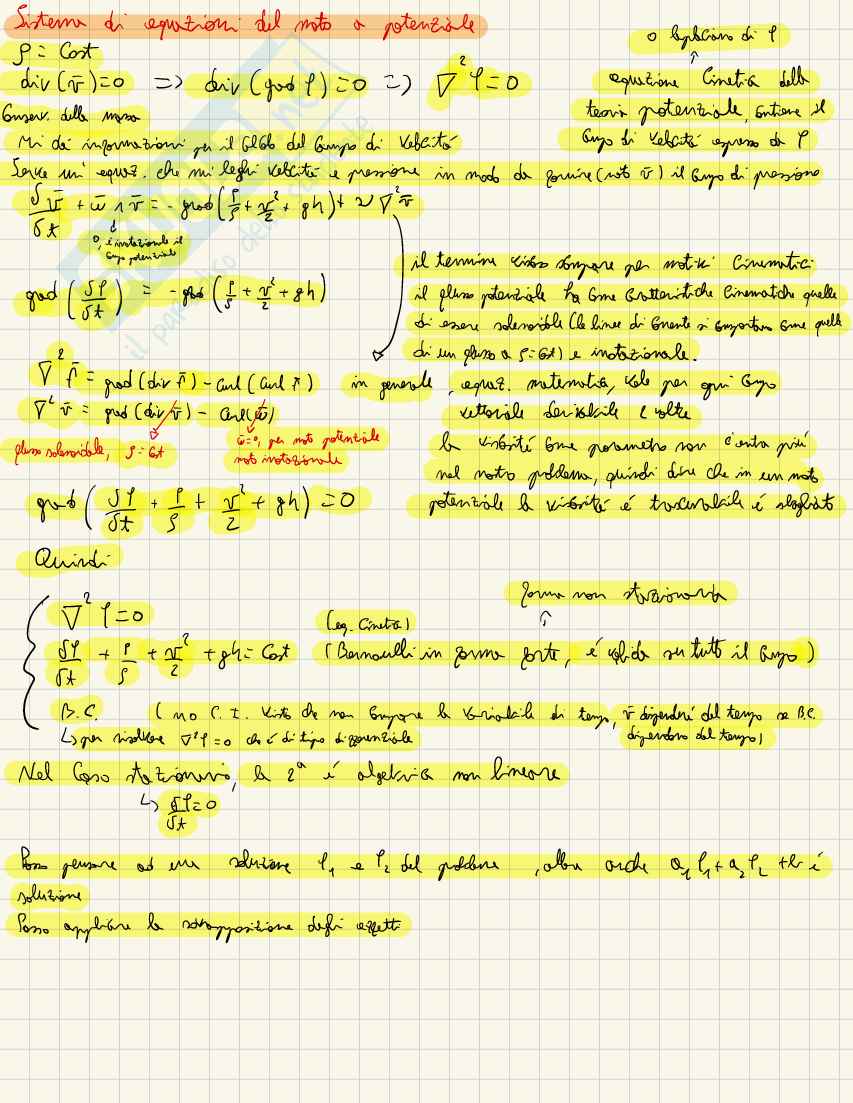 Sistema di equazioni del moto a potenziale
ρ = Cost
div(v̄)=0 => div(grad φ)=0 => ∇²φ=0
o laplaciano di φ
↑
equazione Cinetica della
teoria potenziale, contiene il
Campo di velocità espresso da φ
Conserv. della massa
Mi dà informazioni per il calcolo del Campo di Velocità
Serve un' equaz. che mi leghi velocità e pressione in modo da fornire (noto v̄) il campo di pressione
δv̄/δt + ω̄ ∧ v̄ = - grad(p/ρ + v²/2 + gh) + ν ∇²v̄
0, è irrotazionale il
campo potenziale
grad(δφ/δt) = - grad(p/ρ + v²/2 + gh)
il termine viscoso scompare per motivi Cinematici
il flusso potenziale ha come caratteristiche Cinematiche quelle
di essere solenoidale (le linee di corrente si comportano come quelle
di un flusso a ρ=Cost) e irrotazionale.
∇² f̄ = grad(div f̄) - Curl(Curl f̄) in generale, equaz. matematica, vale per ogni campo
vettoriale derivabile 2 volte
∇² v̄ = grad(div v̄) - Curl(ω̄)
flusso solenoidale, ρ = Cost
ω̄=0, per moto potenziale
moto irrotazionale
la viscosità come parametro non c'entra più
nel nostro problema, quindi dire che in un moto
potenziale la viscosità é trascurabile é sbagliato
grad(δφ/δt + p/ρ + v²/2 + gh) = 0
Quindi
∇²φ=0
(eq. Cinetica)
forma non stazionaria
↑
δφ/δt + p/ρ + v²/2 + gh = Cost (Bernoulli in forma forte, é valida su tutto il campo)
B.C. (no C.I. visto che non compare la variabile di tempo, v̄ dipenderà del tempo se B.C.
dipendono dal tempo)
↳ per risolvere ∇²φ=0 che é di tipo differenziale
Nel Caso stazionario, la 2ª é algebrica non lineare
↳ δφ/δt = 0
Posso pensare ad una soluzione φ₁ e φ₂ del problema, allora anche a₁φ₁ + a₂φ₂ + b é
soluzione
Posso applicare la sovrapposizione degli effetti